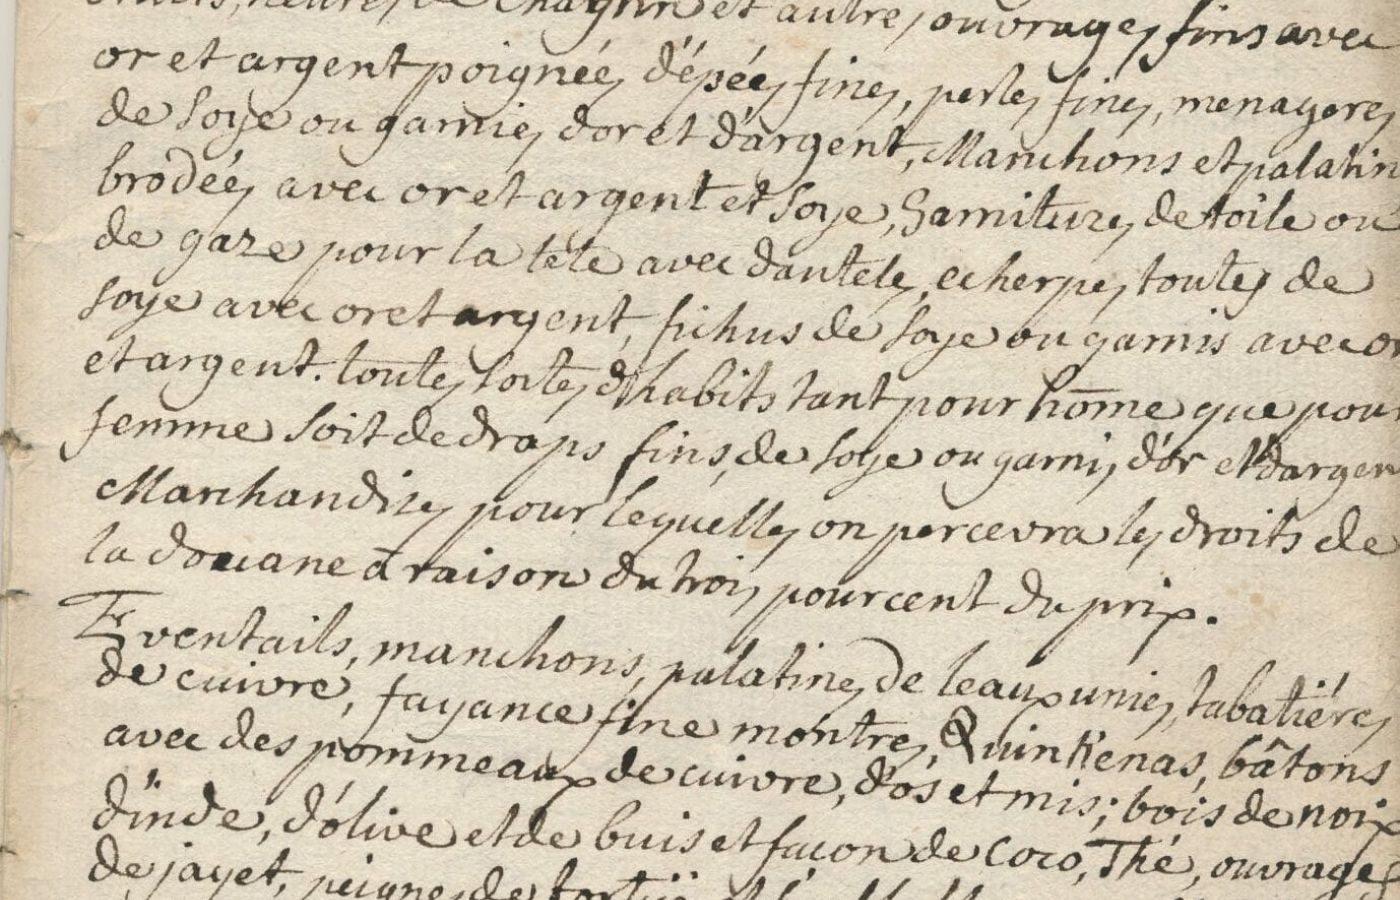 de Chagrin et autres ouvrages fins avec
or et argent poignées d'épées fines, perles fines, menageres
de soye ou garnies d'or et d'argent, Manchons et palatin
brodées avec or et argent et soye, Garnitures de toile ou
de gaze pour la tete avec dantele, echerpes toutes de
soye avec or et argent, fichus de soye ou garnis avec or
et argent. toutes sortes d'habits tant pour hōme que pou
femme soit de draps fins, de soye ou garnis d'or et d'argen
Marchandises pour lequelles on percevra les droits de
la douane à raison du trois pourcent du prix.
Eventails, manchons, palatines de leaux unies, tabatiéres
de cuivre, fayance fine montres, Quinkenas, bâtons
avec des pommeaux de cuivre, d'os et mis; bois de noix
d'inde, d'olive et de buis et façon de Coco, Thé, ouvrages
de jayet, peignes de